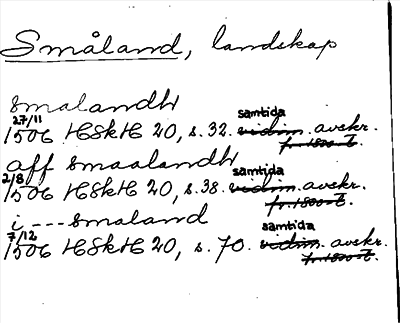 Småland, landskap
smalandh
27/11 samtida
1506 HSkH 20, s. 32. vidim. avskr.
fr. 1800-t.
aff smaalandh
2/8 samtida
1506 HSkH 20, s. 38. vidim. avskr.
fr. 1800-t.
i --- smaland
7/12 samtida
1506 HSkH 20, s. 70. vidim. avskr.
fr. 1800-t.